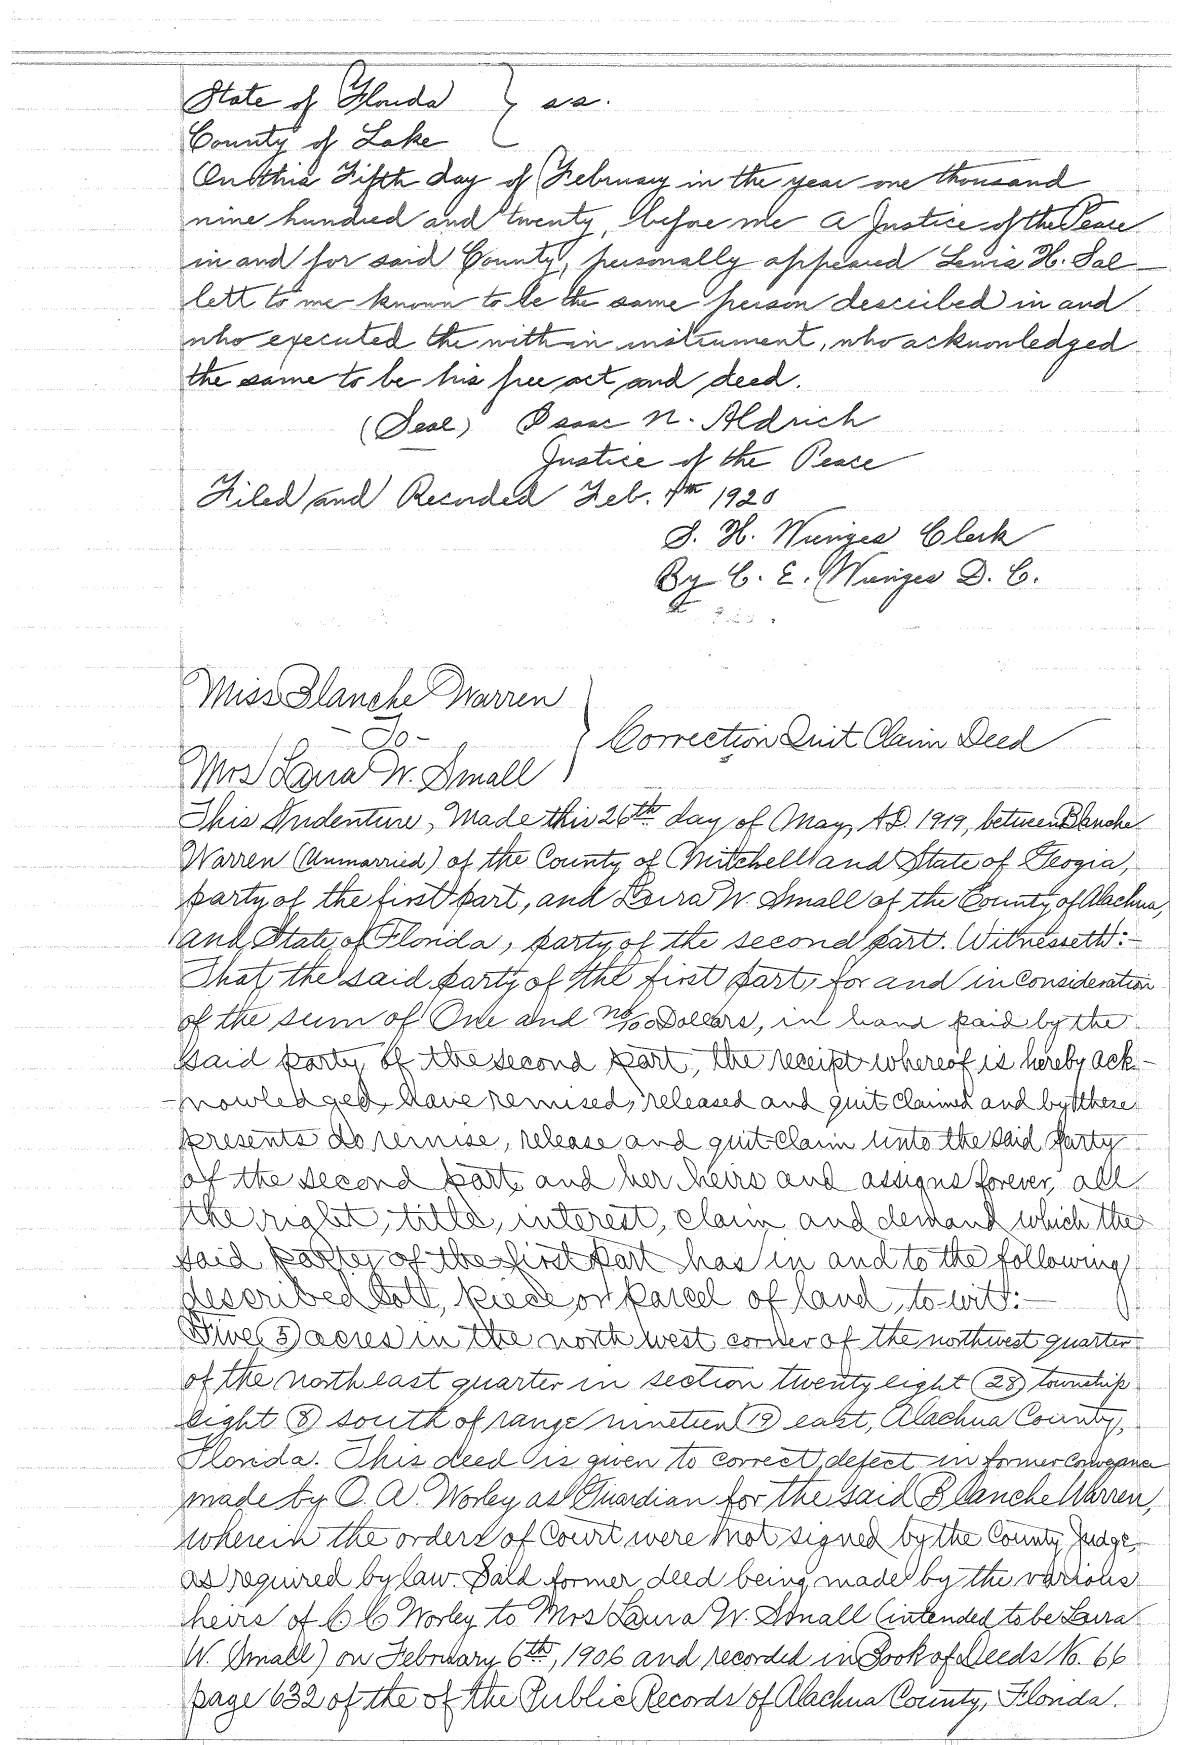 State of Florida } s.s.
County of Lake
On this Fifth day of February in the year one thousand
nine hundred and twenty, before me a Justice of the Peace
in and for said County, personally appeared Lewis H. Sal-
lett to me known to be the same person described in and
who executed the within instrument, who acknowledged
the same to be his free act and deed.
(Seal) Isaac N. Aldrich
Justice of the Peace
Filed and Recorded Feb. 7th 1920
S. H. Wienges Clerk
By C. E. Wienges D. C.
Miss Blanche Warren
-To-
Correction Quit Claim Deed
Mrs Laura W. Small
This Indenture, Made this 26th day of May, A.D. 1919, between Blanche
Warren (Unmarried) of the County of Mitchell and State of Geogia,
party of the first part, and Loura W. Small of the County of Alachua,
and State of Florida, party of the second part. Witnesseth:-
That the said party of the first part, for and in consideration
of the sum of One and no/100 Dollars, in hand paid by the
said party of the second part, the receipt whereof is hereby ack-
-nowledged, have remised, released and quit claimed and by these
presents do remise, release and quit-claim unto the said party
of the second part and her heirs and assigns forever, all
the right, title, interest, claim and demand which the
said party of the first part has in and to the following
described lott, piece or parcel of land, to-wit:-
Five (5) acres in the north west corner of the northwest quarter
of the north east quarter in section twenty eight (28) township
eight (8) south of range nineteen (19) east, Alachua County,
Florida. This deed is given to correct defect in former conveyance
made by O. A. Worley as Guardian for the said Blanche Warren,
wherein the orders of Court were not signed by the County Judge,
as required by law. Said former deed being made by the various
heirs of C C Worley to Mrs Laura W. Small (intended to be Loura
W. Small) on February 6th, 1906 and recorded in Book of Deeds No. 66
page 632 of the of the Public Records of Alachua County, Florida.